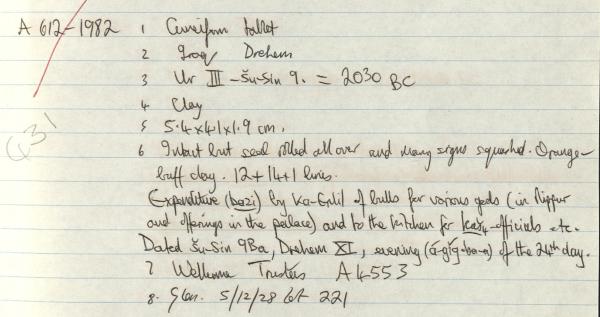 A 612-1982 1 Cuneiform tablet
2 Iraq Drehem
3 Ur III - Šu-Sin 9. = 2030 BC
4 Clay
5 5.4x4.1x1.9 cm.
6 Intact but seal rolled all over and many signs squashed. Orange-
buff clay. 12+14+1 lines.
Expenditure (bazi) by Ka-Enlil of bulls for various gods (in Nippur
and offerings in the palace) and to the kitchen for kaš4-officials etc.
Dated Šu-Sin 9Ba, Drehem XI, evening of the 24th day.
7 Wellcome Trustees A14553
8. Glen. 5/12/28 lot 221
G31